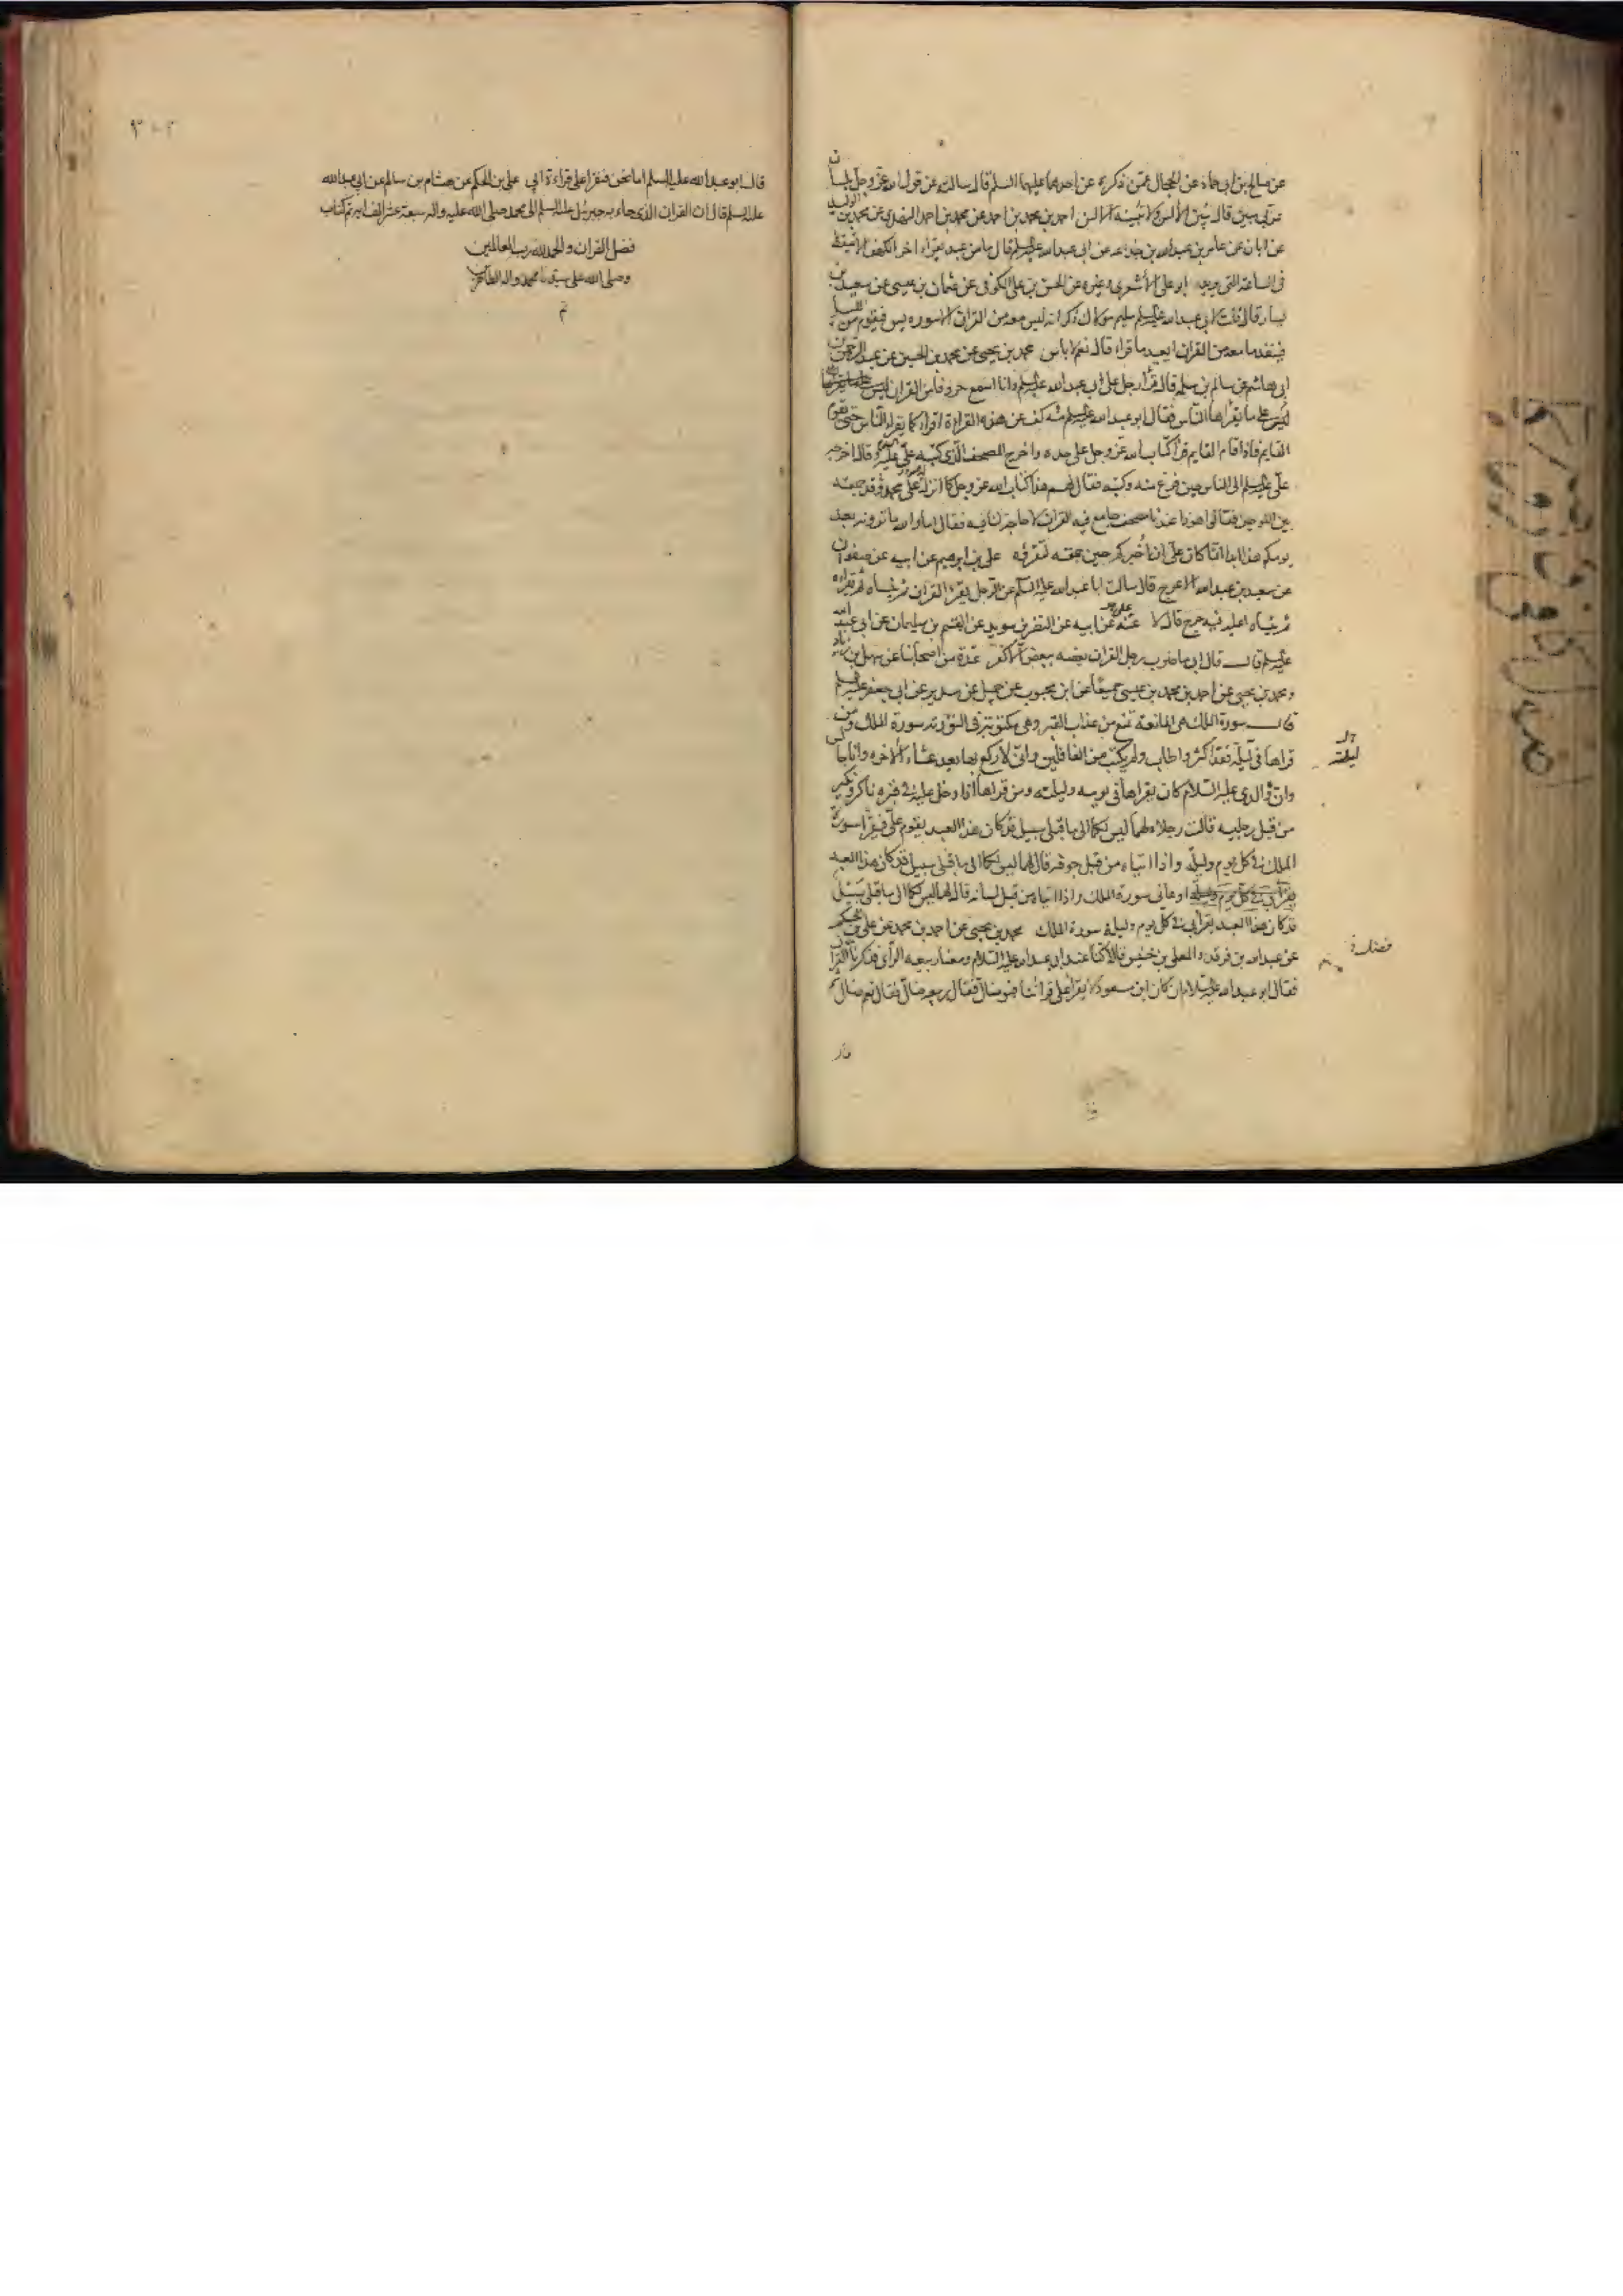 عن صالح بن ابي حماد عن الحجال عمن ذكره عن احدهما عليهما السلم قال سالته عن قول الله عز وجل بلسان
عربي مبين قال يبين الالسن ولا تبينه الالسن احمد بن محمد بن احمد عن محمد بن احمد النهدي عن محمد بن الوليد
عن ابان عن عامر بن عبد الله بن جذاعه عن ابي عبد الله عليه السلم قال ما من عبد يقراء اخر الكهف الا تيقظ
في الساعة التي يريد ابو علي الأشعري وغيره عن الحسن بن علي الكوفي عن عثمان بن عيسى عن سعيد بن
يسار قال قلت لابي عبد الله عليه السلم سليم مولاك ذكر انه ليس معه من القران الا سورة يس فيقوم من الليل
فينفد ما معه من القران ايعيد ما قراء قال نعم لا باس محمد بن يحيى عن محمد بن الحسين عن عبد الرحمن بن
ابي هاشم عن سالم بن سلمه قال قرأ رجل على ابي عبد الله عليه السلم وانا اسمع حروفا من القران
ليس على ما يقراها الناس فقال ابو عبد الله عليه السلم مه كف عن هذه القراءة اقراء كما يقراء الناس حتى يقوم
القايم فاذا قام القايم قرأ كتاب الله عز وجل على حده واخرج المصحف الذي كتبه علي عليه السلم وقال اخرجه
علي عليه السلم الى الناس حين فرغ منه وكتبه فقال لهم هذا كتاب الله عز وجل كما انزله على محمد وقد جمعته
بين اللوحين فقالوا هوذا عندنا مصحف جامع فيه القران لا حاجة لنا فيه فقال اما والله ما ترونه بعد
يومكم هذا ابدا انما كان علي ان أخبركم حين جمعته لتقرؤه علي بن ابرهيم عن ابيه عن صفوان
عن سعيد بن عبد الله الاعرج قال سالت ابا عبد الله عليه السلم عن الرجل يقرأ القران ثم ينساه ثم يقراه
ثم ينساه اعليه فيه حرج قال لا علي عن ابيه عن النضر بن سويد عن القسم بن سليمان عن ابي عبد الله
عليه السلم قال قال ابي ما ضرب رجل القران بعضه ببعض الا كفر عدة من اصحابنا عن سهل بن زياد
ومحمد بن يحيى عن احمد بن محمد بن عيسى جميعًا عن ابن محبوب عن جميل عن سدير عن ابي جعفر عليه السلم
قال سورة الملك هي المانعة تمنع من عذاب القبر وهي مكتوبة في التورية سورة الملك ومن
قراها في ليلة فقد اكثر واطاب ولم يكتب من الغافلين واني لأركع بها بعد عشاء الآخره وانا جالس
ليلته
وان والدي عليه السلام كان يقراها في يومه وليلته ومن قراها اذا دخل عليه في قبره ناكر ونكير
من قبل رجليه قالت رجلاه لهما ليس لكما الى ما قبلي سبيل قد كان هذا العبد يقوم علي فيقرأ سورة
الملك في كل يوم وليلة واذا اتياه من قبل جوفه قال لهما ليس لكما الى ما قبلي سبيل قد كان هذا العبد
اوعاني سورة الملك واذا اتياه من قبل لسانه قال لهما ليس لكما الى ما قبلي سبيل
قد كان هذا العبد يقرأ بي في كل يوم وليلة سورة الملك محمد بن يحيى عن احمد بن محمد عن علي بن الحكم
عن عبد الله بن فرقد والمعلى بن خنيس قالا كنا عند ابي عبد الله عليه السلام ومعنا ربيعه الرأي فذكرنا القران
فقال ابو عبد الله عليه السلام ان كان ابن مسعود لا يقرأ على قرائتنا فهو ضال فقال ربيعه ضال فقال نعم ضال ثم
قال ابو عبد الله عليه السلم اما نحن فنقرأ على قراءة ابي علي بن الحكم عن هشام بن سالم عن ابي عبد الله
عليه السلم قال ان القران الذي جاء به جبرئيل عليه السلم الى محمد صلى الله عليه واله سبعة عشر الف ايه تم كتاب
فضل القران والحمد لله رب العالمين
وصلى الله على سيدنا محمد واله الطاهرين
تم